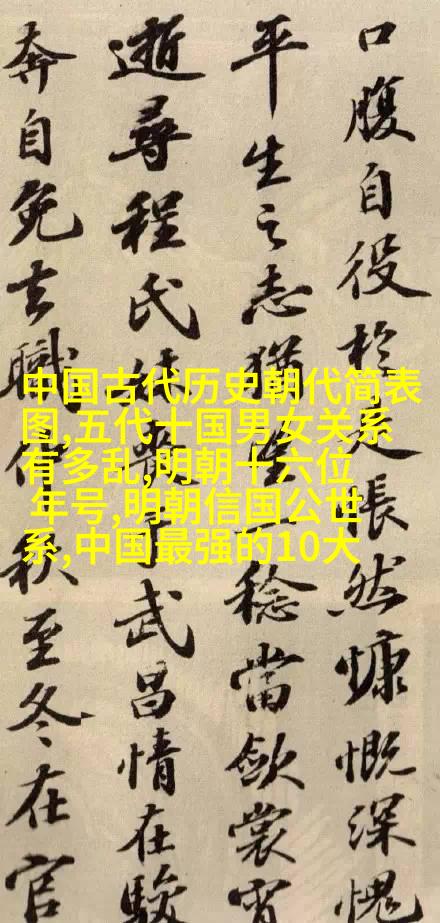 口腹自役於是悵然慷慨深愧
平生之志猶望一稔當歛裳宵
逝尋程氏妹喪于武昌情在駿
奔自免去職仲秋至冬在官
中国古代历史朝代简表
图,五代十国男女关系
有多乱,明朝十六位
年号,明朝信国公世
系,中国最强的10大